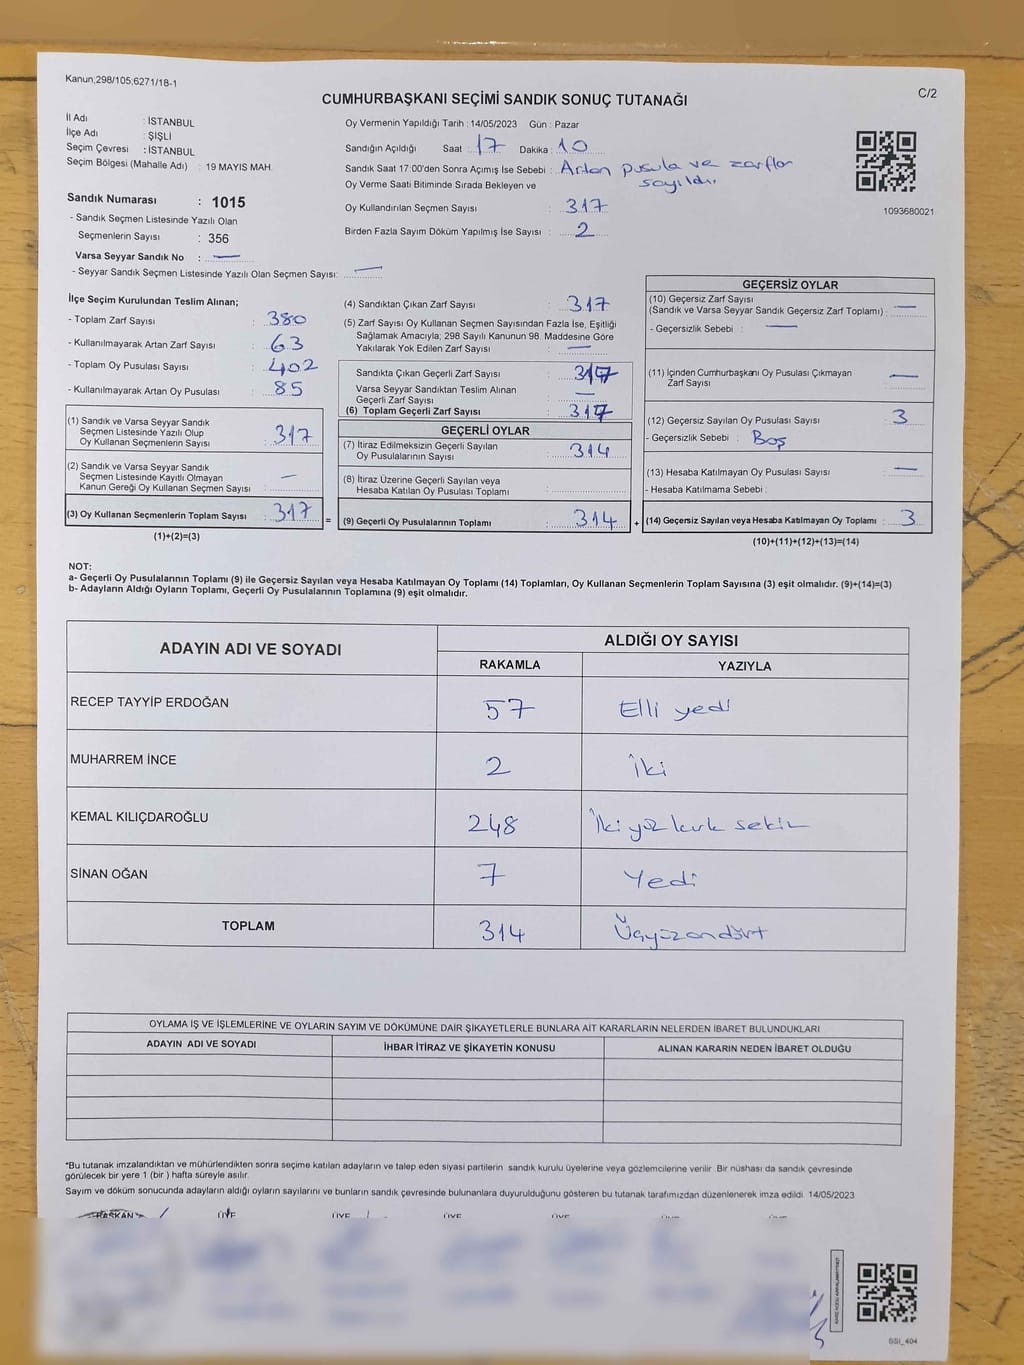 Kanun;298/105;6271/18-1
C/2
CUMHURBAŞKANI SEÇİMİ SANDIK SONUÇ TUTANAĞI
İl Adı : İSTANBUL
İlçe Adı : ŞİŞLİ
Seçim Çevresi : İSTANBUL
Seçim Bölgesi (Mahalle Adı) : 19 MAYIS MAH.
Sandık Numarası : 1015
- Sandık Seçmen Listesinde Yazılı Olan
Seçmenlerin Sayısı : 356
Varsa Seyyar Sandık No : —
- Seyyar Sandık Seçmen Listesinde Yazılı Olan Seçmen Sayısı: —
Oy Vermenin Yapıldığı Tarih : 14/05/2023 Gün : Pazar
Sandığın Açıldığı Saat : 17 Dakika : 10
Sandık Saat 17:00'den Sonra Açımış İse Sebebi : Artan pusula ve zarflar
sayıldı.
Oy Verme Saati Bitiminde Sırada Bekleyen ve
Oy Kullandırılan Seçmen Sayısı : 317
Birden Fazla Sayım Döküm Yapılmış İse Sayısı : 2
1093680021
İlçe Seçim Kurulundan Teslim Alınan;
- Toplam Zarf Sayısı : 380
- Kullanılmayarak Artan Zarf Sayısı : 63
- Toplam Oy Pusulası Sayısı : 402
- Kullanılmayarak Artan Oy Pusulası : 85
(1) Sandık ve Varsa Seyyar Sandık
Seçmen Listesinde Yazılı Olup
Oy Kullanan Seçmenlerin Sayısı : 317
(2) Sandık ve Varsa Seyyar Sandık
Seçmen Listesinde Kayıtlı Olmayan
Kanun Gereği Oy Kullanan Seçmen Sayısı : —
(3) Oy Kullanan Seçmenlerin Toplam Sayısı : 317
(1)+(2)=(3)
=
(4) Sandıktan Çıkan Zarf Sayısı : 317
(5) Zarf Sayısı Oy Kullanan Seçmen Sayısından Fazla İse, Eşitliği
Sağlamak Amacıyla; 298 Sayılı Kanunun 98. Maddesine Göre
Yakılarak Yok Edilen Zarf Sayısı : —
Sandıkta Çıkan Geçerli Zarf Sayısı : 317
Varsa Seyyar Sandıktan Teslim Alınan
Geçerli Zarf Sayısı : —
(6) Toplam Geçerli Zarf Sayısı : 317
GEÇERLİ OYLAR
(7) İtiraz Edilmeksizin Geçerli Sayılan
Oy Pusulalarının Sayısı : 314
(8) İtiraz Üzerine Geçerli Sayılan veya
Hesaba Katılan Oy Pusulası Toplamı :
(9) Geçerli Oy Pusulalarının Toplamı : 314
+
GEÇERSİZ OYLAR
(10) Geçersiz Zarf Sayısı
(Sandık ve Varsa Seyyar Sandık Geçersiz Zarf Toplamı) : —
- Geçersizlik Sebebi : —
(11) İçinden Cumhurbaşkanı Oy Pusulası Çıkmayan
Zarf Sayısı : —
(12) Geçersiz Sayılan Oy Pusulası Sayısı : 3
- Geçersizlik Sebebi : Boş
(13) Hesaba Katılmayan Oy Pusulası Sayısı : —
- Hesaba Katılmama Sebebi :
(14) Geçersiz Sayılan veya Hesaba Katılmayan Oy Toplamı : 3
(10)+(11)+(12)+(13)=(14)
NOT:
a- Geçerli Oy Pusulalarının Toplamı (9) ile Geçersiz Sayılan veya Hesaba Katılmayan Oy Toplamı (14) Toplamları, Oy Kullanan Seçmenlerin Toplam Sayısına (3) eşit olmalıdır. (9)+(14)=(3)
b- Adayların Aldığı Oyların Toplamı, Geçerli Oy Pusulalarının Toplamına (9) eşit olmalıdır.
ADAYIN ADI VE SOYADI
ALDIĞI OY SAYISI
RAKAMLA YAZIYLA
RECEP TAYYİP ERDOĞAN 57 Elli yedi
MUHARREM İNCE 2 İki
KEMAL KILIÇDAROĞLU 248 İki yüz kırk sekiz
SİNAN OĞAN 7 Yedi
TOPLAM 314 Üçyüzondört
OYLAMA İŞ VE İŞLEMLERİNE VE OYLARIN SAYIM VE DÖKÜMÜNE DAİR ŞİKAYETLERLE BUNLARA AİT KARARLARIN NELERDEN İBARET BULUNDUKLARI
ADAYIN ADI VE SOYADI İHBAR İTİRAZ VE ŞİKAYETİN KONUSU ALINAN KARARIN NEDEN İBARET OLDUĞU
*Bu tutanak imzalandıktan ve mühürlendikten sonra seçime katılan adayların ve talep eden siyasi partilerin sandık kurulu üyelerine veya gözlemcilerine verilir. Bir nüshası da sandık çevresinde
görülecek bir yere 1 (bir ) hafta süreyle asılır.
Sayım ve döküm sonucunda adayların aldığı oyların sayılarını ve bunların sandık çevresinde bulunanlara duyurulduğunu gösteren bu tutanak tarafımızdan düzenlenerek imza edildi. 14/05/2023
BAŞKAN ÜYE ÜYE ÜYE ÜYE
SSI_404